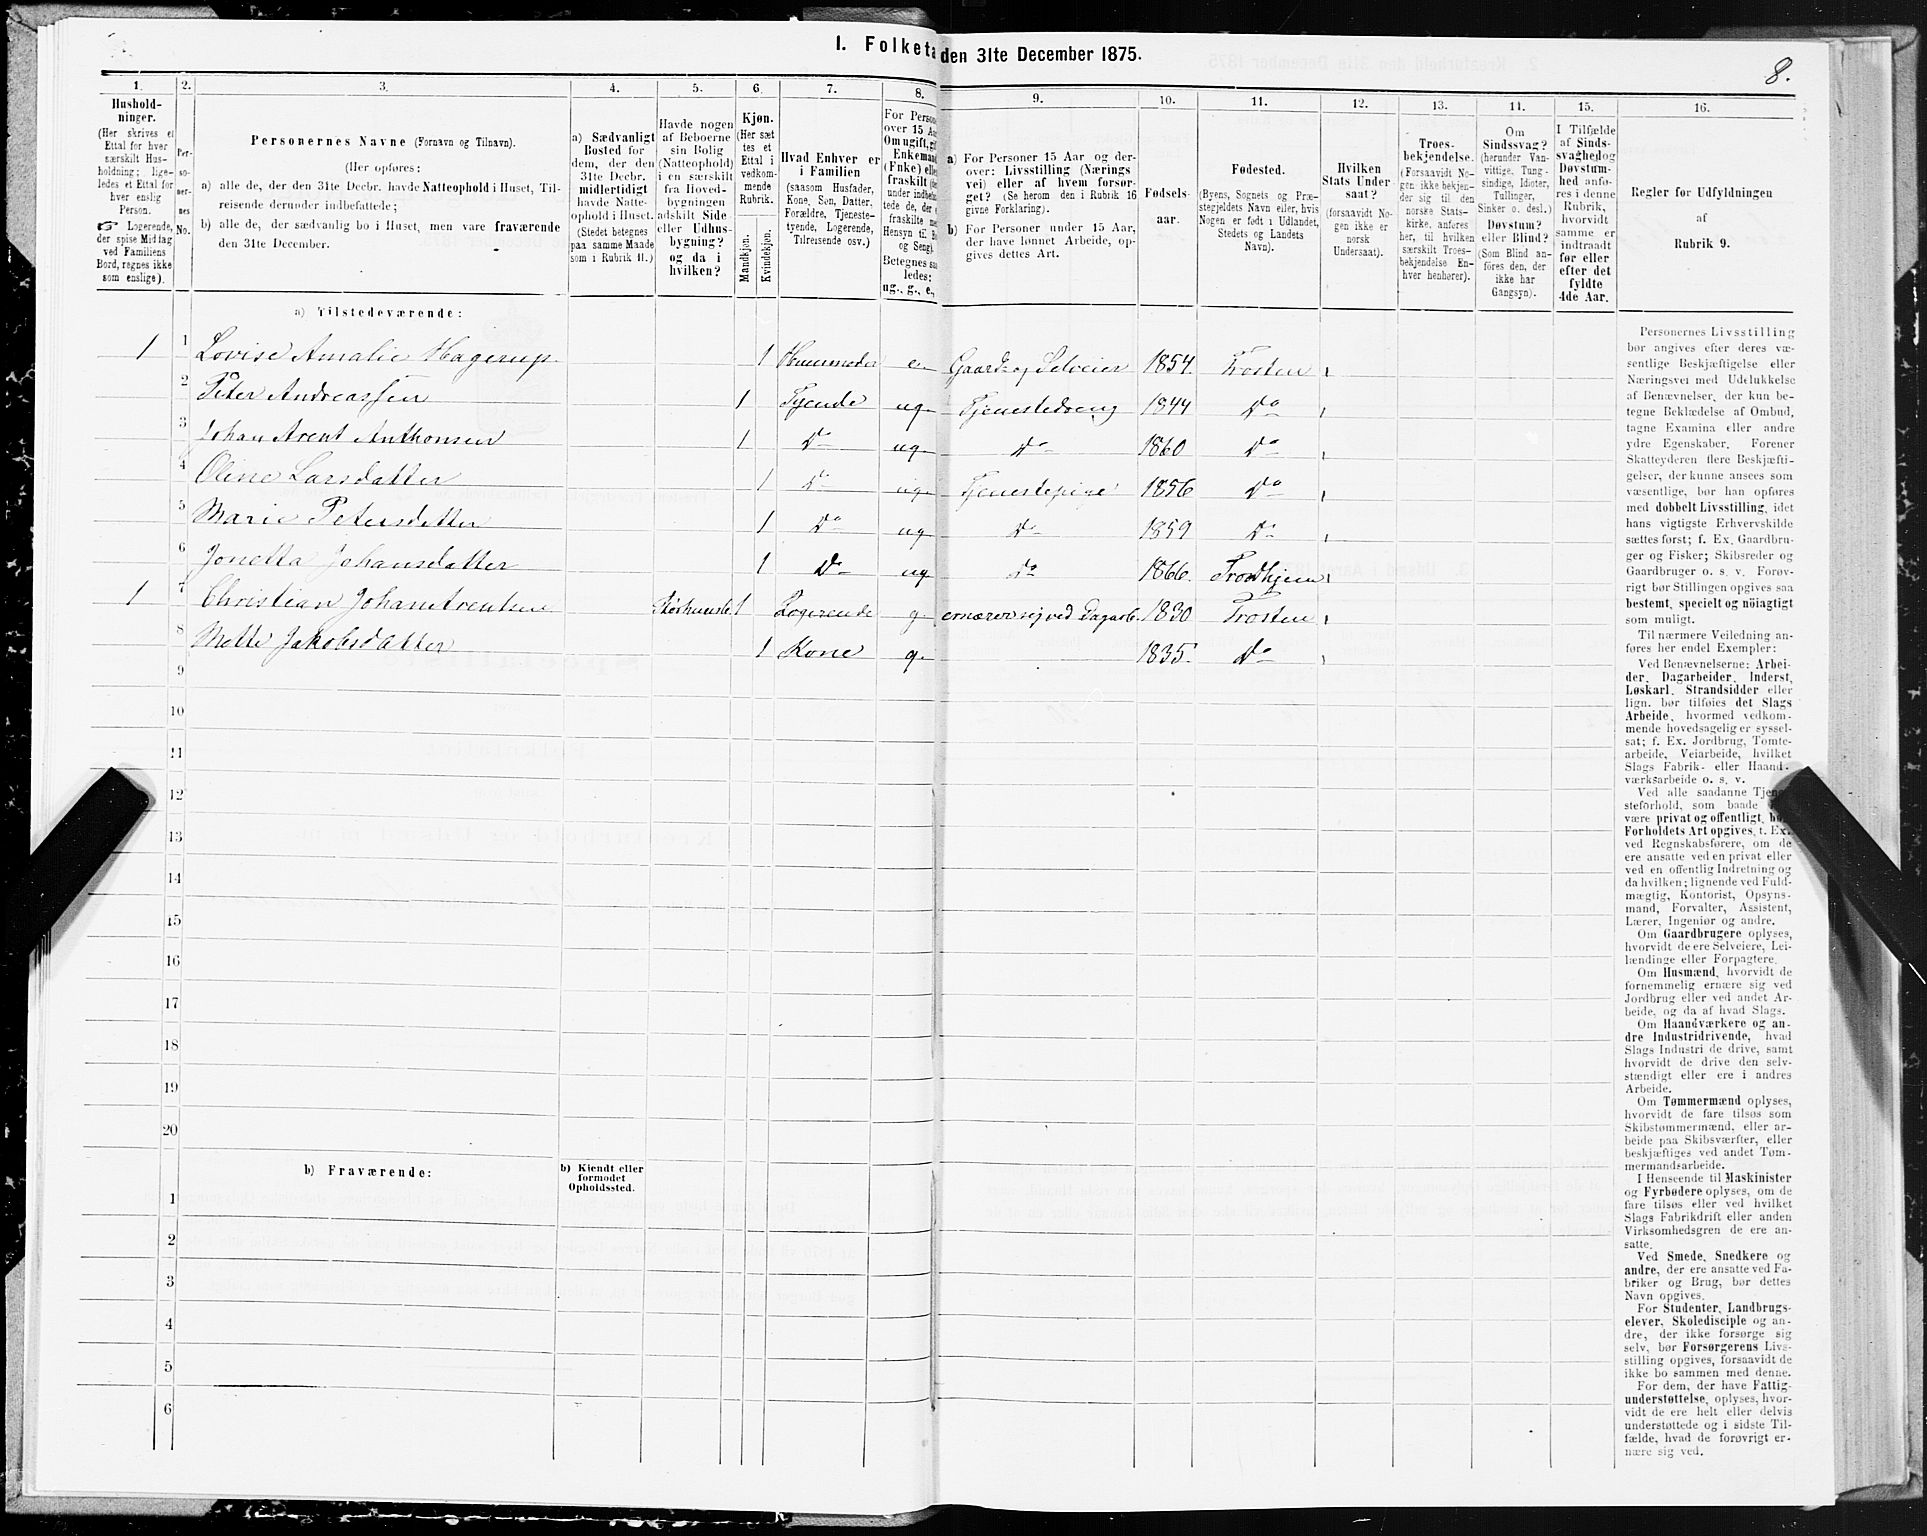 I. Folketæ
den 31te December 1875.
8.
1.
2.
3.
4.
5.
6.
7.
8.
9.
10.
11.
12.
13.
14.
15.
16.
Hushold-
ninger.
(Her skrives et
Ettal for hver
særskilt Hus-
holdning; lige-
ledes et Ettal for
hver enslig
Person.
☞ Logerende,
der spise Middag
ved Familiens
Bord, regnes ikke
som enslige).
Per-
so-
ner-
nes
No.
Personernes Navne (Fornavn og Tilnavn).
(Her opføres:
a) alle de, der den 31te Decbr. havde Natteophold i Huset, Til-
reisende derunder indbefattede;
b) alle de, der sædvanlig bo i Huset, men vare fraværende
den 31te December.
a) Sædvanligt
Bosted for
dem, der den
31te Decbr.
midlertidigt
havde Natte-
ophold i Huset.
(Stedet betegnes
paa samme Maade
som i Rubrik 11.)
Havde nogen
af Beboerne
sin Bolig
(Natteophold)
i en særskilt
fra Hoved-
bygningen
adskilt Side-
eller Udhus-
bygning?
og da i
hvilken?
Kjøn.
(Her sæt-
tes et
Ettal i
vedkom-
mende
Rubrik.
Mandkjøn.
Kvindekjøn.
Hvad Enhver er
i Familien
(saasom Husfader,
Kone, Søn, Datter,
Forældre, Tjeneste-
tyende, Logerende,
Tilreisende osv.)
For Person
over 15 Aar
Om ugift, gi
Enkemand
(Enke) elle
fraskilt (de
under indbefat
tede de, der e
fraskilte me
Hensyn til B
og Seng).
Betegnes saa
ledes:
ug., g., e.,
a) For Personer 15 Aar og der-
over: Livsstilling (Nærings-
vei) eller af hvem forsør-
get? (Se herom den i Rubrik 16
givne Forklaring).
b) For Personer under 15 Aar,
der have lønnet Arbeide, op-
gives dettes Art.
Fødsels-
aar.
Fødested.
(Byens, Sognets og Præ-
stegjeldets Navn eller, hvis
Nogen er født i Udlandet,
Stedets og Landets
Navn).
Hvilken
Stats Under-
saat?
(forsaavidt No-
gen ikke er
norsk
Undersaat).
Troes-
bekjendelse.
(Forsaavidt No-
gen ikke bekjen-
der sig til den
norske Stats-
kirke, anføres
her, til hvilken
særskilt Troes-
bekjendelse En-
hver henhører).
Om
Sindssvag?
(herunder Van-
vittige, Tung-
sindige, Idioter,
Tullinger,
Sinker o. desl.)
Døvstum?
eller Blind?
(Som Blind an-
føres den, der
ikke har
Gangsyn).
I Tilfælde
af Sinds-
svaghed og
Døvstum-
hed anfø-
res i denne
Rubrik,
hvorvidt
samme er
indtraadt
før eller
efter det
fyldte
4de Aar.
Regler for Udfyldningen
af
Rubrik 9.
a) Tilstedeværende:
1 1 Lovise Amalie Hagerup 1 Huusmoder e Gaards og Selveier 1854 Frosten
2 Peter Andreassen 1 Tyende ug Tjenestedreng 1844 Do
3 Johan Arent Anthonsen 1 Do ug Do 1860 Do
4 Oline Larsdatter 1 Do ug Tjenestepige 1856 Do
5 Marie Petersdatter 1 Do ug Do 1859 Do
6 Jonetta Johansdatter 1 Do ug Do 1866 Trondhjem
1 7 Christian Johan Arentsen 1 Logerende g ernærer sig ved Dagarb. 1830 Frosten
8 Mette Jakobsdatter 1 Kone g. 1835. Do
9
10
11
12
13
14
15
16
17
18
19
20
b) Fraværende:
b) Kjendt eller
formodet
Opholdssted.
1
2
3
4
5
6
Personernes Livsstilling
bør angives efter deres væ-
sentlige Beskjæftigelse eller
Næringsvei med Udelukkelse
af Benævnelser, der kun be-
tegne Beklædelse af Ombud,
tagne Examina eller andre
ydre Egenskaber. Forener
Skatteyderen flere Beskjæfti-
gelser, der kunne ansees som
væsentlige, bør han opføres
med dobbelt Livsstilling, idet
hans vigtigste Erhvervskilde
sættes først; f. Ex. Gaardbru-
ger og Fisker; Skibsreder og
Gaardbruger o. s. v. Forøv-
rigt bør Stillingen opgives saa
bestemt, specielt og nöiagtigt
som muligt.
Til nærmere Veiledning an-
føres her endel Exempler:
Ved Benævnelserne: Arbei-
der, Dagarbeider, Inderst,
Løskarl, Strandsidder eller
lign. bør tilføies det Slags
Arbeide, hvormed vedkom-
mende hovedsagelig er syssel-
sat; f. Ex. Jordbrug, Tomte-
arbeide, Veiarbeide, hvilket
Slags Fabrik- eller Haand-
værksarbeide o. s. v.
Ved alle saadanne Tjene-
steforhold, som baade
være privat og offentligt, bør
Forholdets Art opgives, t. Ex.
ved Regnskabsførere, om de
ere ansatte ved en privat eller
ved en offentlig Indretning og
da hvilken; lignende ved Fuld-
mægtig, Kontorist, Opsyns-
mand, Forvalter, Assistent,
Lærer, Ingeniør og andre.
Om Gaardbrugere oplyses,
hvorvidt de ere Selveiere, Lei-
lændinge eller Forpagtere.
Om Husmænd, hvorvidt de
fornemmelig ernære sig ved
Jordbrug eller ved andet Ar-
beide, og da af hvad Slags.
Om Haandværkere og an-
dre Industridrivende, hvad
Slags Industri de drive, samt
hvorvidt de drive den selv-
stændigt eller ere i andres
Arbeide.
Om Tømmermænd oplyses,
hvorvidt de fare tilsøs som
Skibstømmermænd, eller ar-
beide paa Skibsværfter, eller
beskjæftiges ved andet Tøm-
mermandsarbeide.
I Henseende til Maskinister
og Fyrbødere oplyses, om de
fare tilsøs eller ved hvilket
Slags Fabrikdrift eller anden
Virksomhedsgren de ere an-
satte.
Ved Smede, Snedkere og
andre, der ere ansatte ved Fa-
briker og Brug, bør dettes
Navn opgives.
For Studenter, Landbrugs-
elever, Skoledisciple og an-
dre, der ikke forsørge sig
selv, bør Forsørgerens Livs-
stilling opgives, forsaavidt de
ikke bo sammen med denne.
For dem, der have Fattig-
understøttelse, oplyses, hvor-
vidt de ere helt eller delvis
understøttede og i sidste Til-
fælde, hvad de forøvrigt er-
nære sig ved.